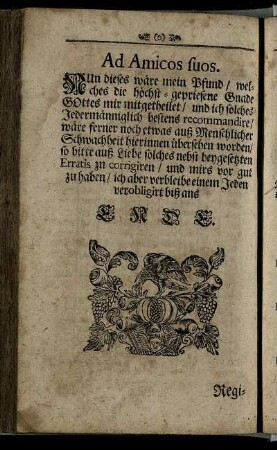 Ad Amicos suos.
NUn dieses wäre mein Pfund / wel-
ches die höchst-gepriesene Gnade
GOttes mir mitgetheilet / und ich solches
Jedermänniglich bestens recommandire /
wäre ferner noch etwas auß Menschlicher
Schwachheit hierinnen übersehen worden /
so bitte auß Liebe solches nebst beygesetzten
Erratis zu corrigiren / und mirs vor gut
zu haben / ich aber verbleibe einem Jeden
verobligirt biß ans
ENDE.
Regi-